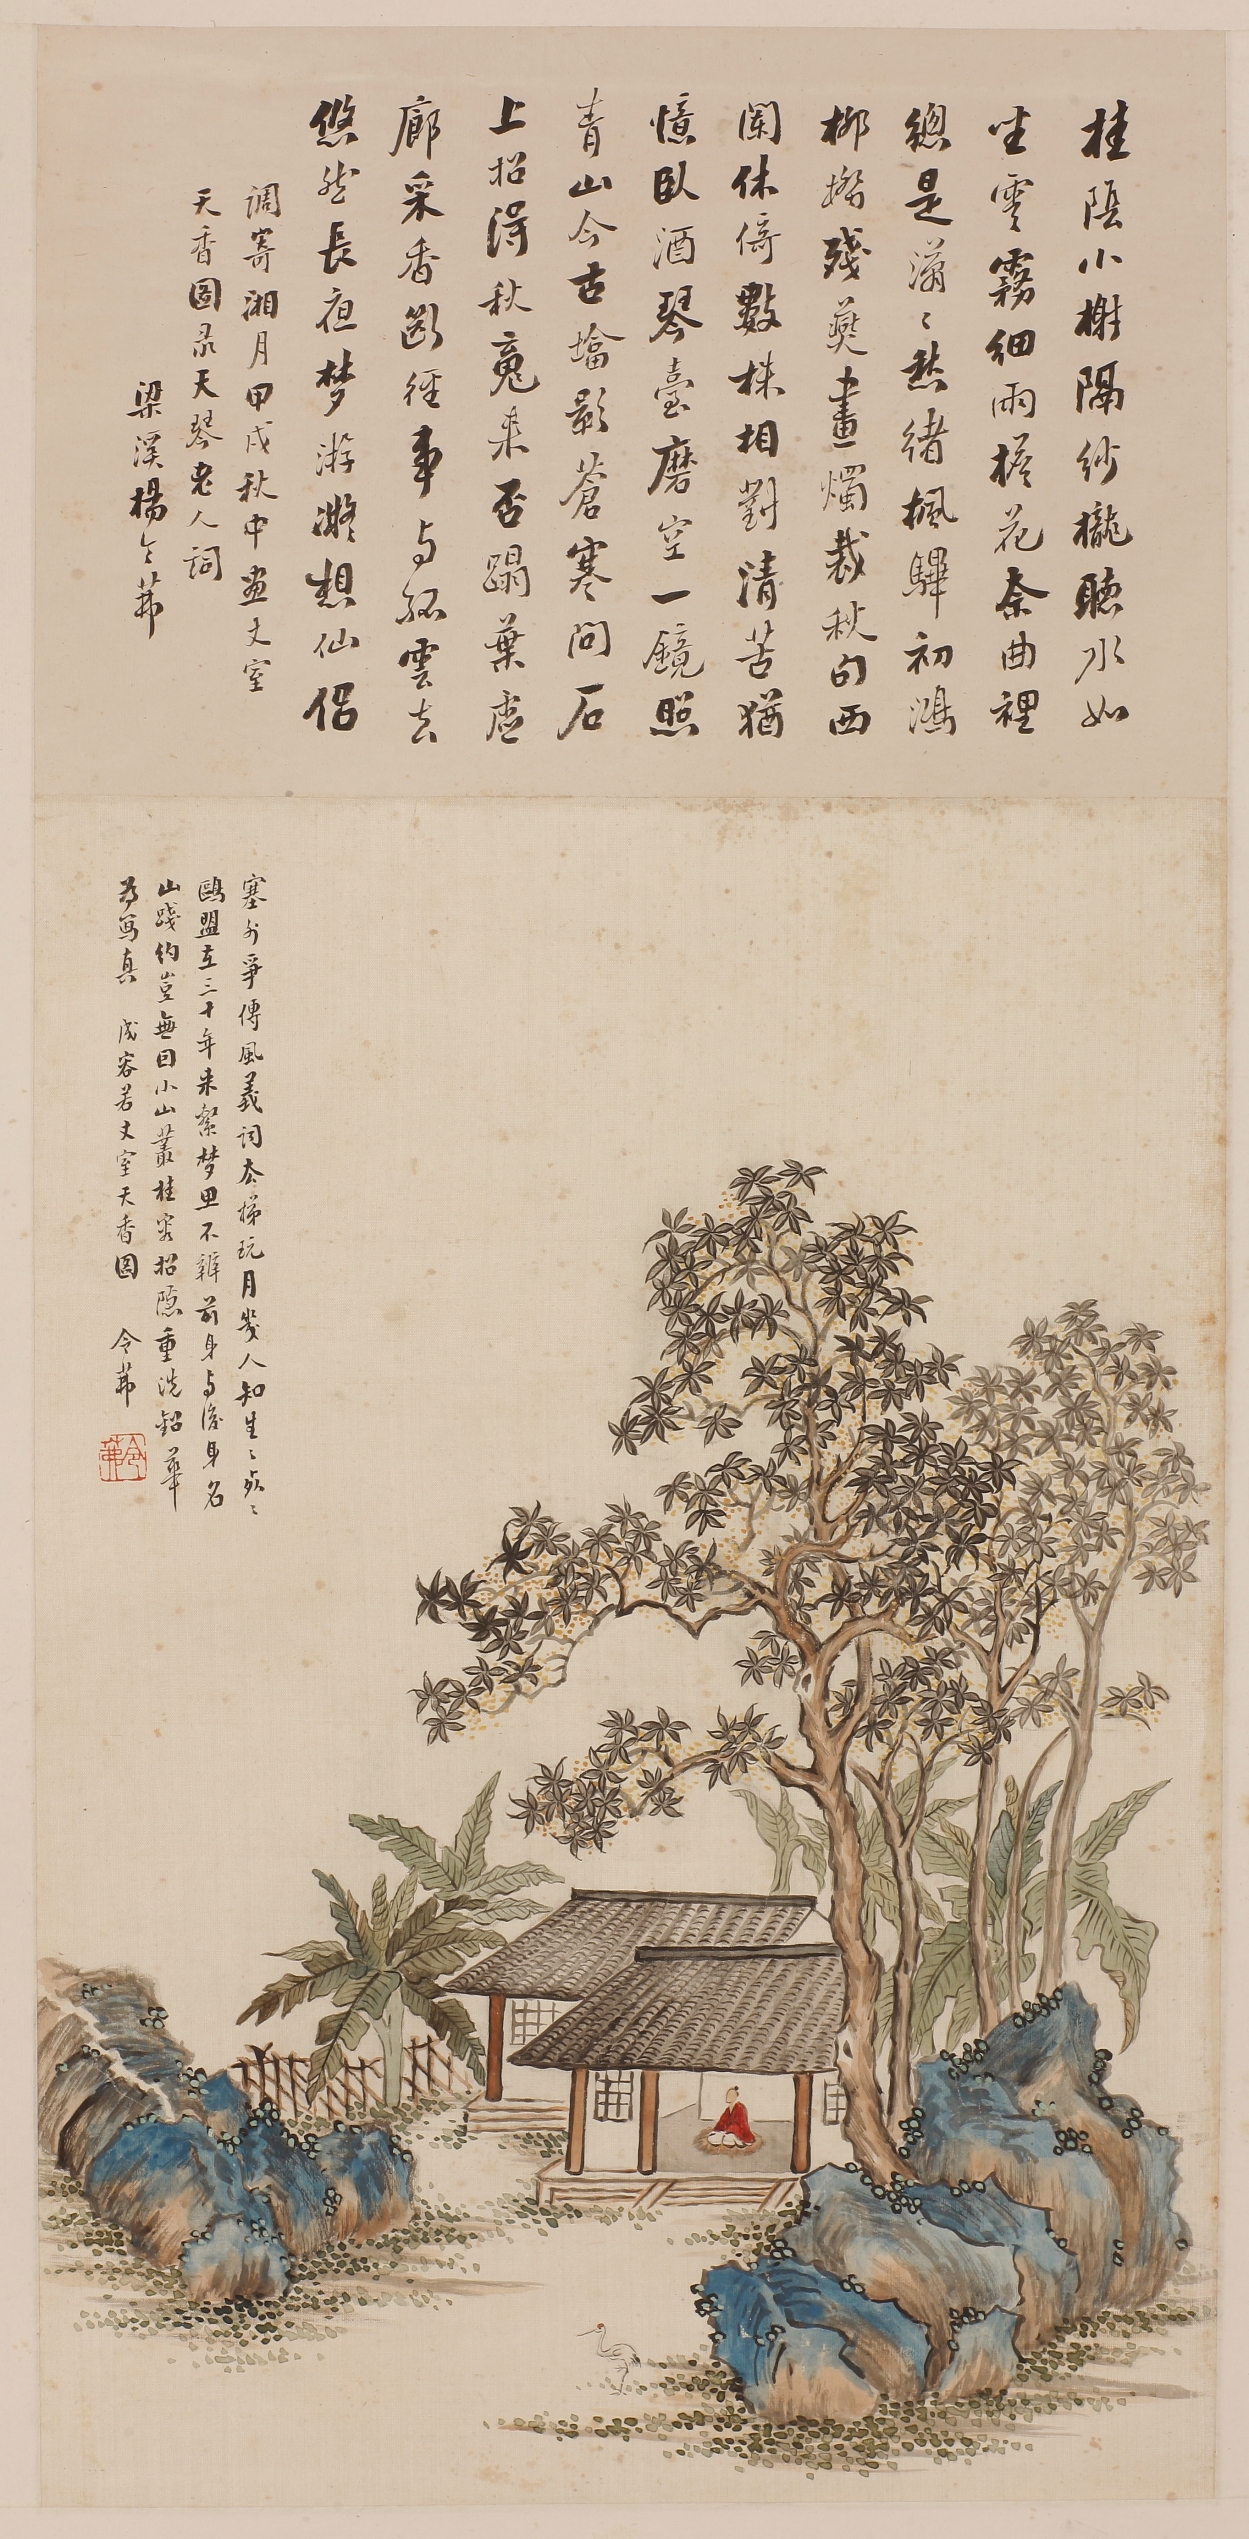 桂陰小榭隔紗櫳聽水如
坐雲霧細雨檐花奈曲裡
總是瀟〻愁緒楓驛初鴻
柳橋殘燕畫燭裁秋句西
闌休倚數株相對清苦猶
憶臥酒琴臺磨空一鏡照
青山今古墖影蒼寒問石
上招得秋䰟来否蹋葉虛
廊采香斷徑事与孤雲去
悠然長夜梦游凝想仙侶
調寄湘月甲戌秋中画丈室
天香圖录天琴老人詞
梁溪楊令茀
塞外爭傳風義詞太梯玩月幾人知生〻歘〻
鷗盟在三十年来絮梦思不辨前身与後身名
山踐約豈無因小山叢桂容招隱重洗鉛華
为写真 成容若丈室天香図 令茀
令茀